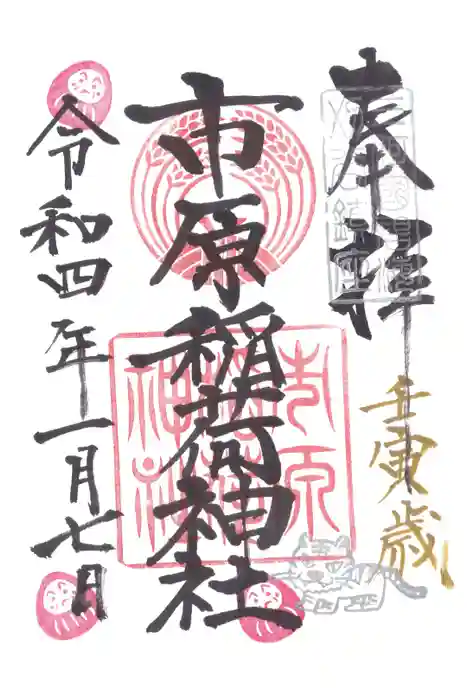 奉拝
壬寅歳
市原稲荷神社
令和四年一月七日
市原稲荷神社